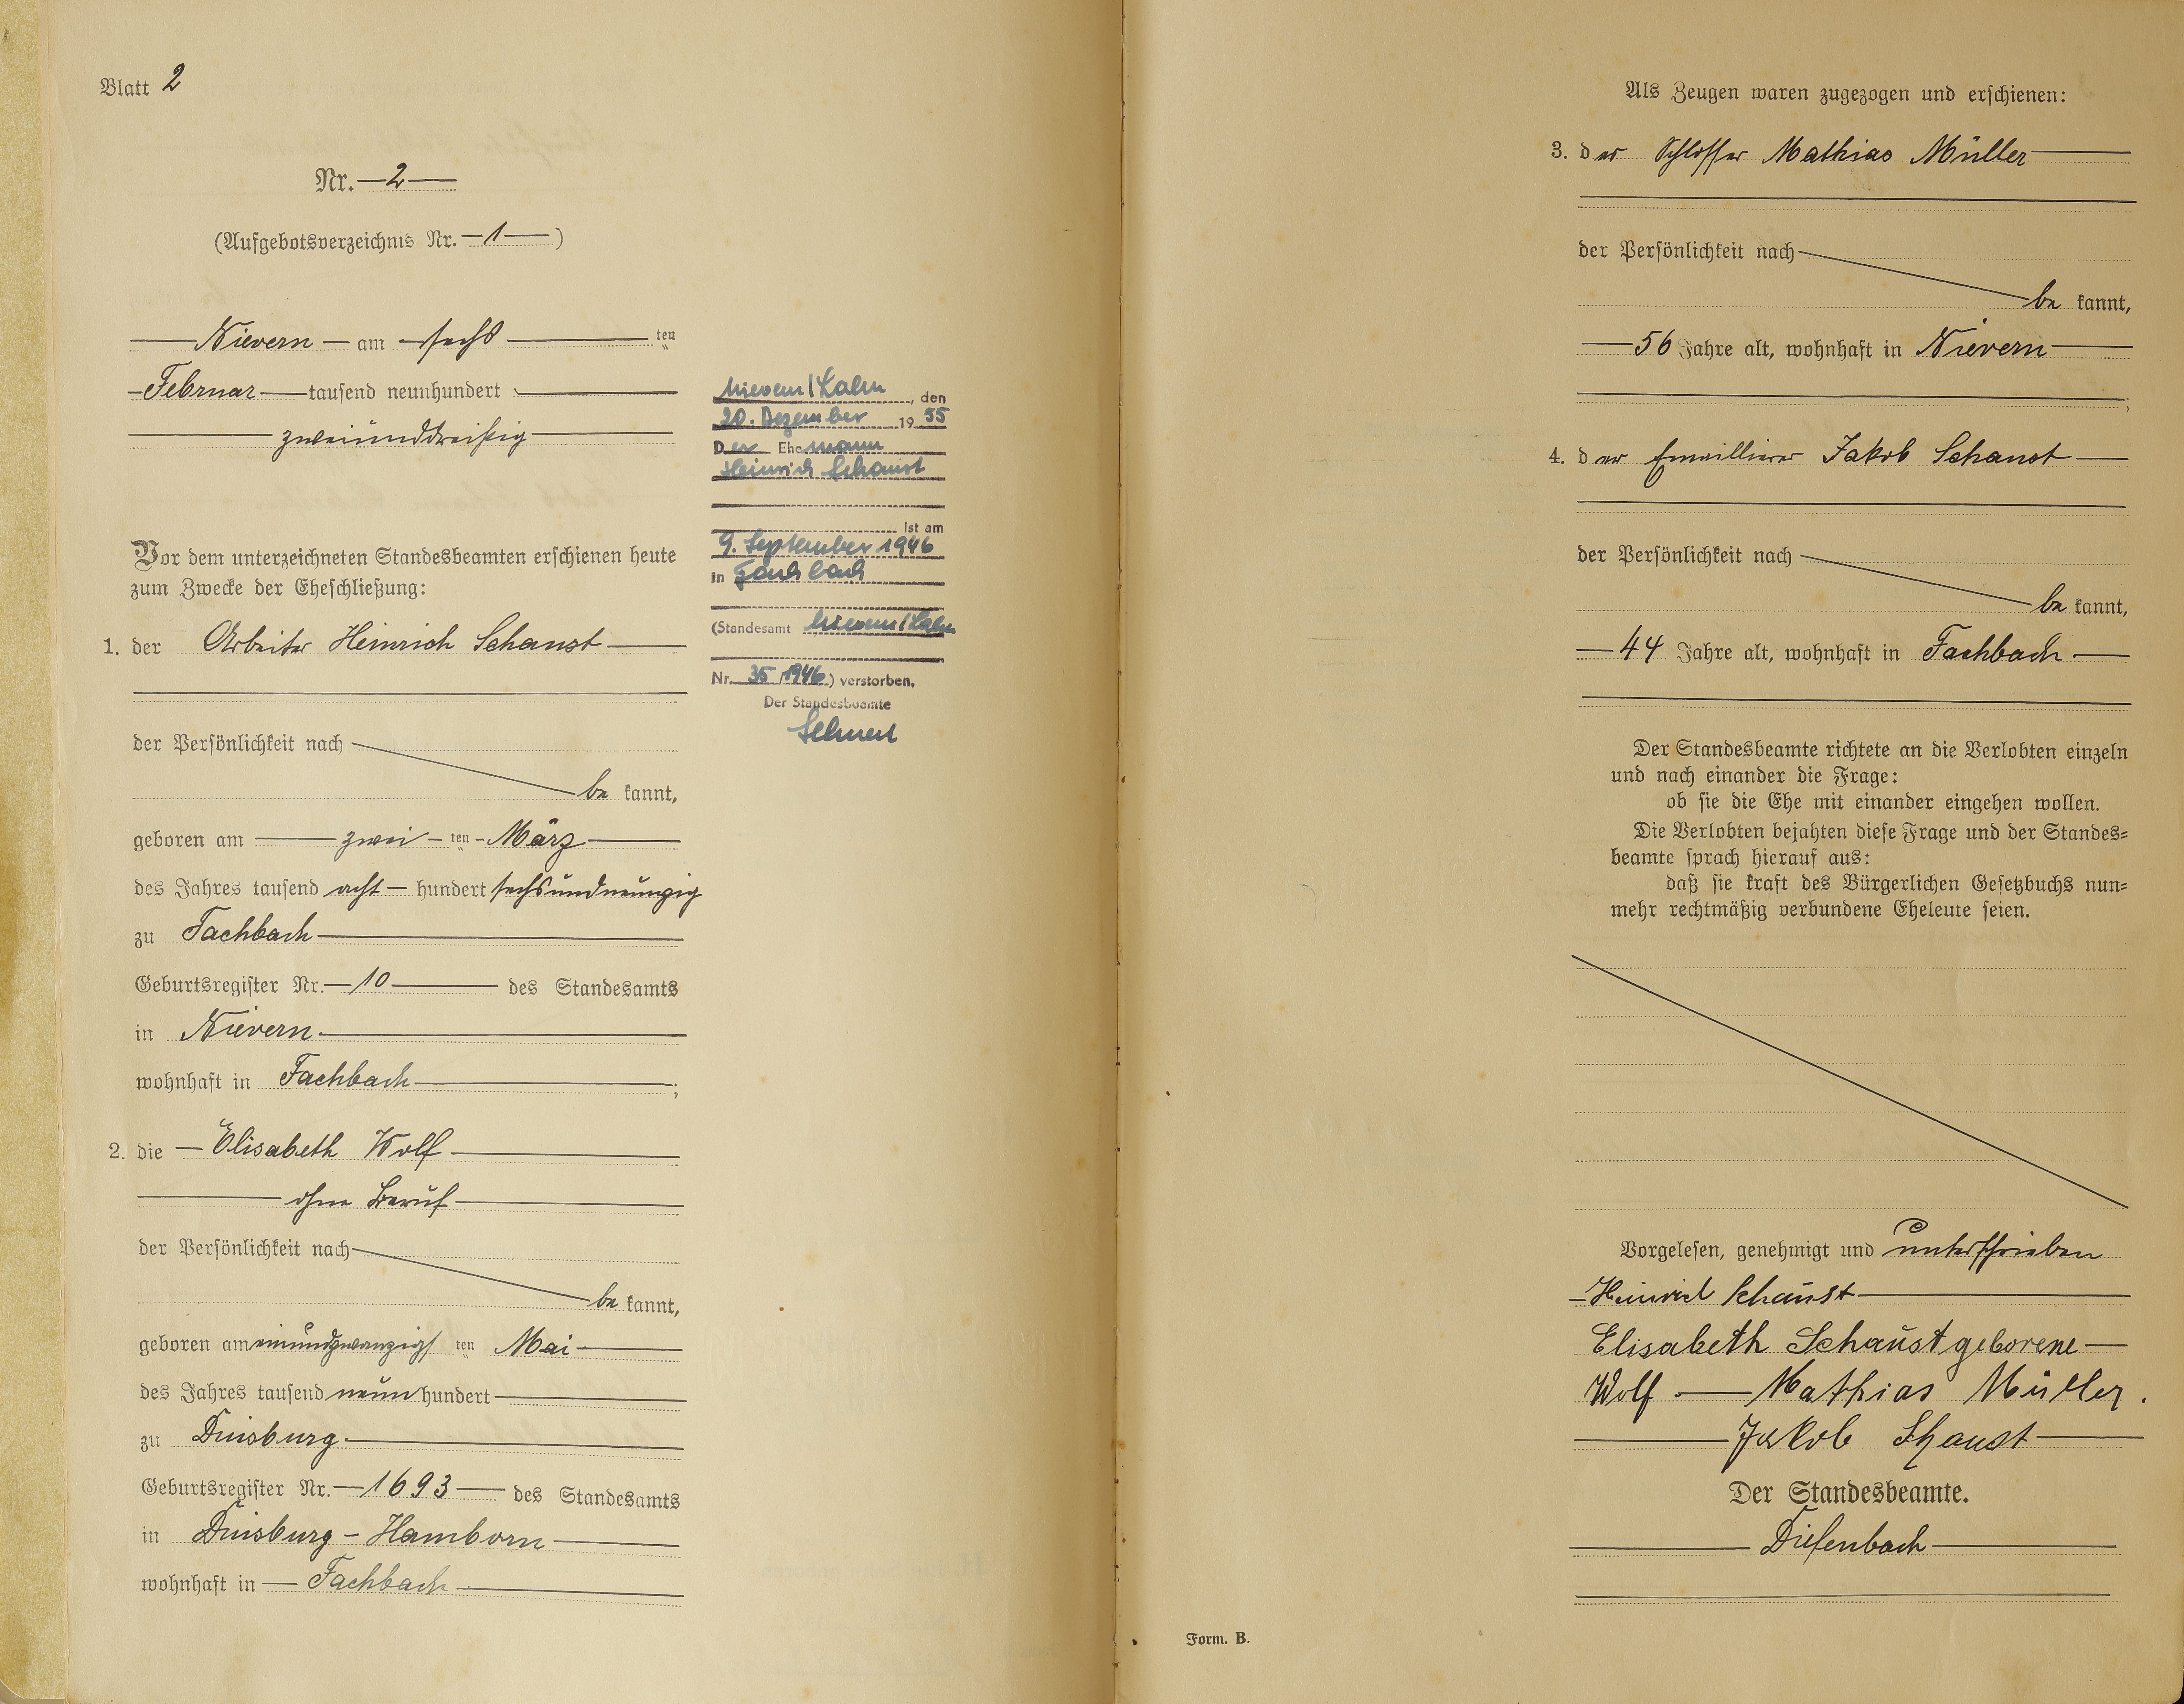 Blatt 2
Nr. 2
(Aufgebotsverzeichnis Nr. 1)
Nievern am sechs ten
Februar tausend neunhundert
zweiunddreißig
Vor dem unterzeichneten Standesbeamten erschienen heute
zum Zwecke der Eheschließung:
1. der Arbeiter Heinrich Schaust
der Persönlichkeit nach
be kannt,
geboren am zwei ten März
des Jahres tausend acht hundert sechsundneunzig
zu Fachbach
Geburtsregister Nr. 10 des Standesamts
in Nievern
wohnhaft in Fachbach ;
2. die Elisabeth Wolf
ohne Beruf
der Persönlichkeit nach
be kannt,
geboren am einundzwanzigs ten Mai
des Jahres tausend neun hundert
zu Duisburg
Geburtsregister Nr. 1693 des Standesamts
in Duisburg-Hamborn
wohnhaft in Fachbach
Nievern/Lahn, den
20. Dezember 1955
Der Ehemann
Heinrich Schaust
ist am
9. September 1946
in Fachbach
(Standesamt Nievern/Lahn
Nr. 35/1946) verstorben.
Der Standesbeamte
Als Zeugen waren zugezogen und erschienen:
3. der Schlosser Mathias Müller
der Persönlichkeit nach
be kannt,
56 Jahre alt, wohnhaft in Nievern
;
4. der Emaillierer Jakob Schaust
der Persönlichkeit nach
be kannt,
44 Jahre alt, wohnhaft in Fachbach
Der Standesbeamte richtete an die Verlobten einzeln
und nach einander die Frage:
ob sie die Ehe mit einander eingehen wollen.
Die Verlobten bejahten diese Frage und der Standes=
beamte sprach hierauf aus:
daß sie kraft des Bürgerlichen Gesetzbuchs nun=
mehr rechtmäßig verbundene Eheleute seien.
Vorgelesen, genehmigt und unterschrieben
Heinrich Schaust
Elisabeth Schaust geborene
Wolf Mathias Müller.
Jakob Schaust
Der Standesbeamte.
Diefenbach
Form. B.